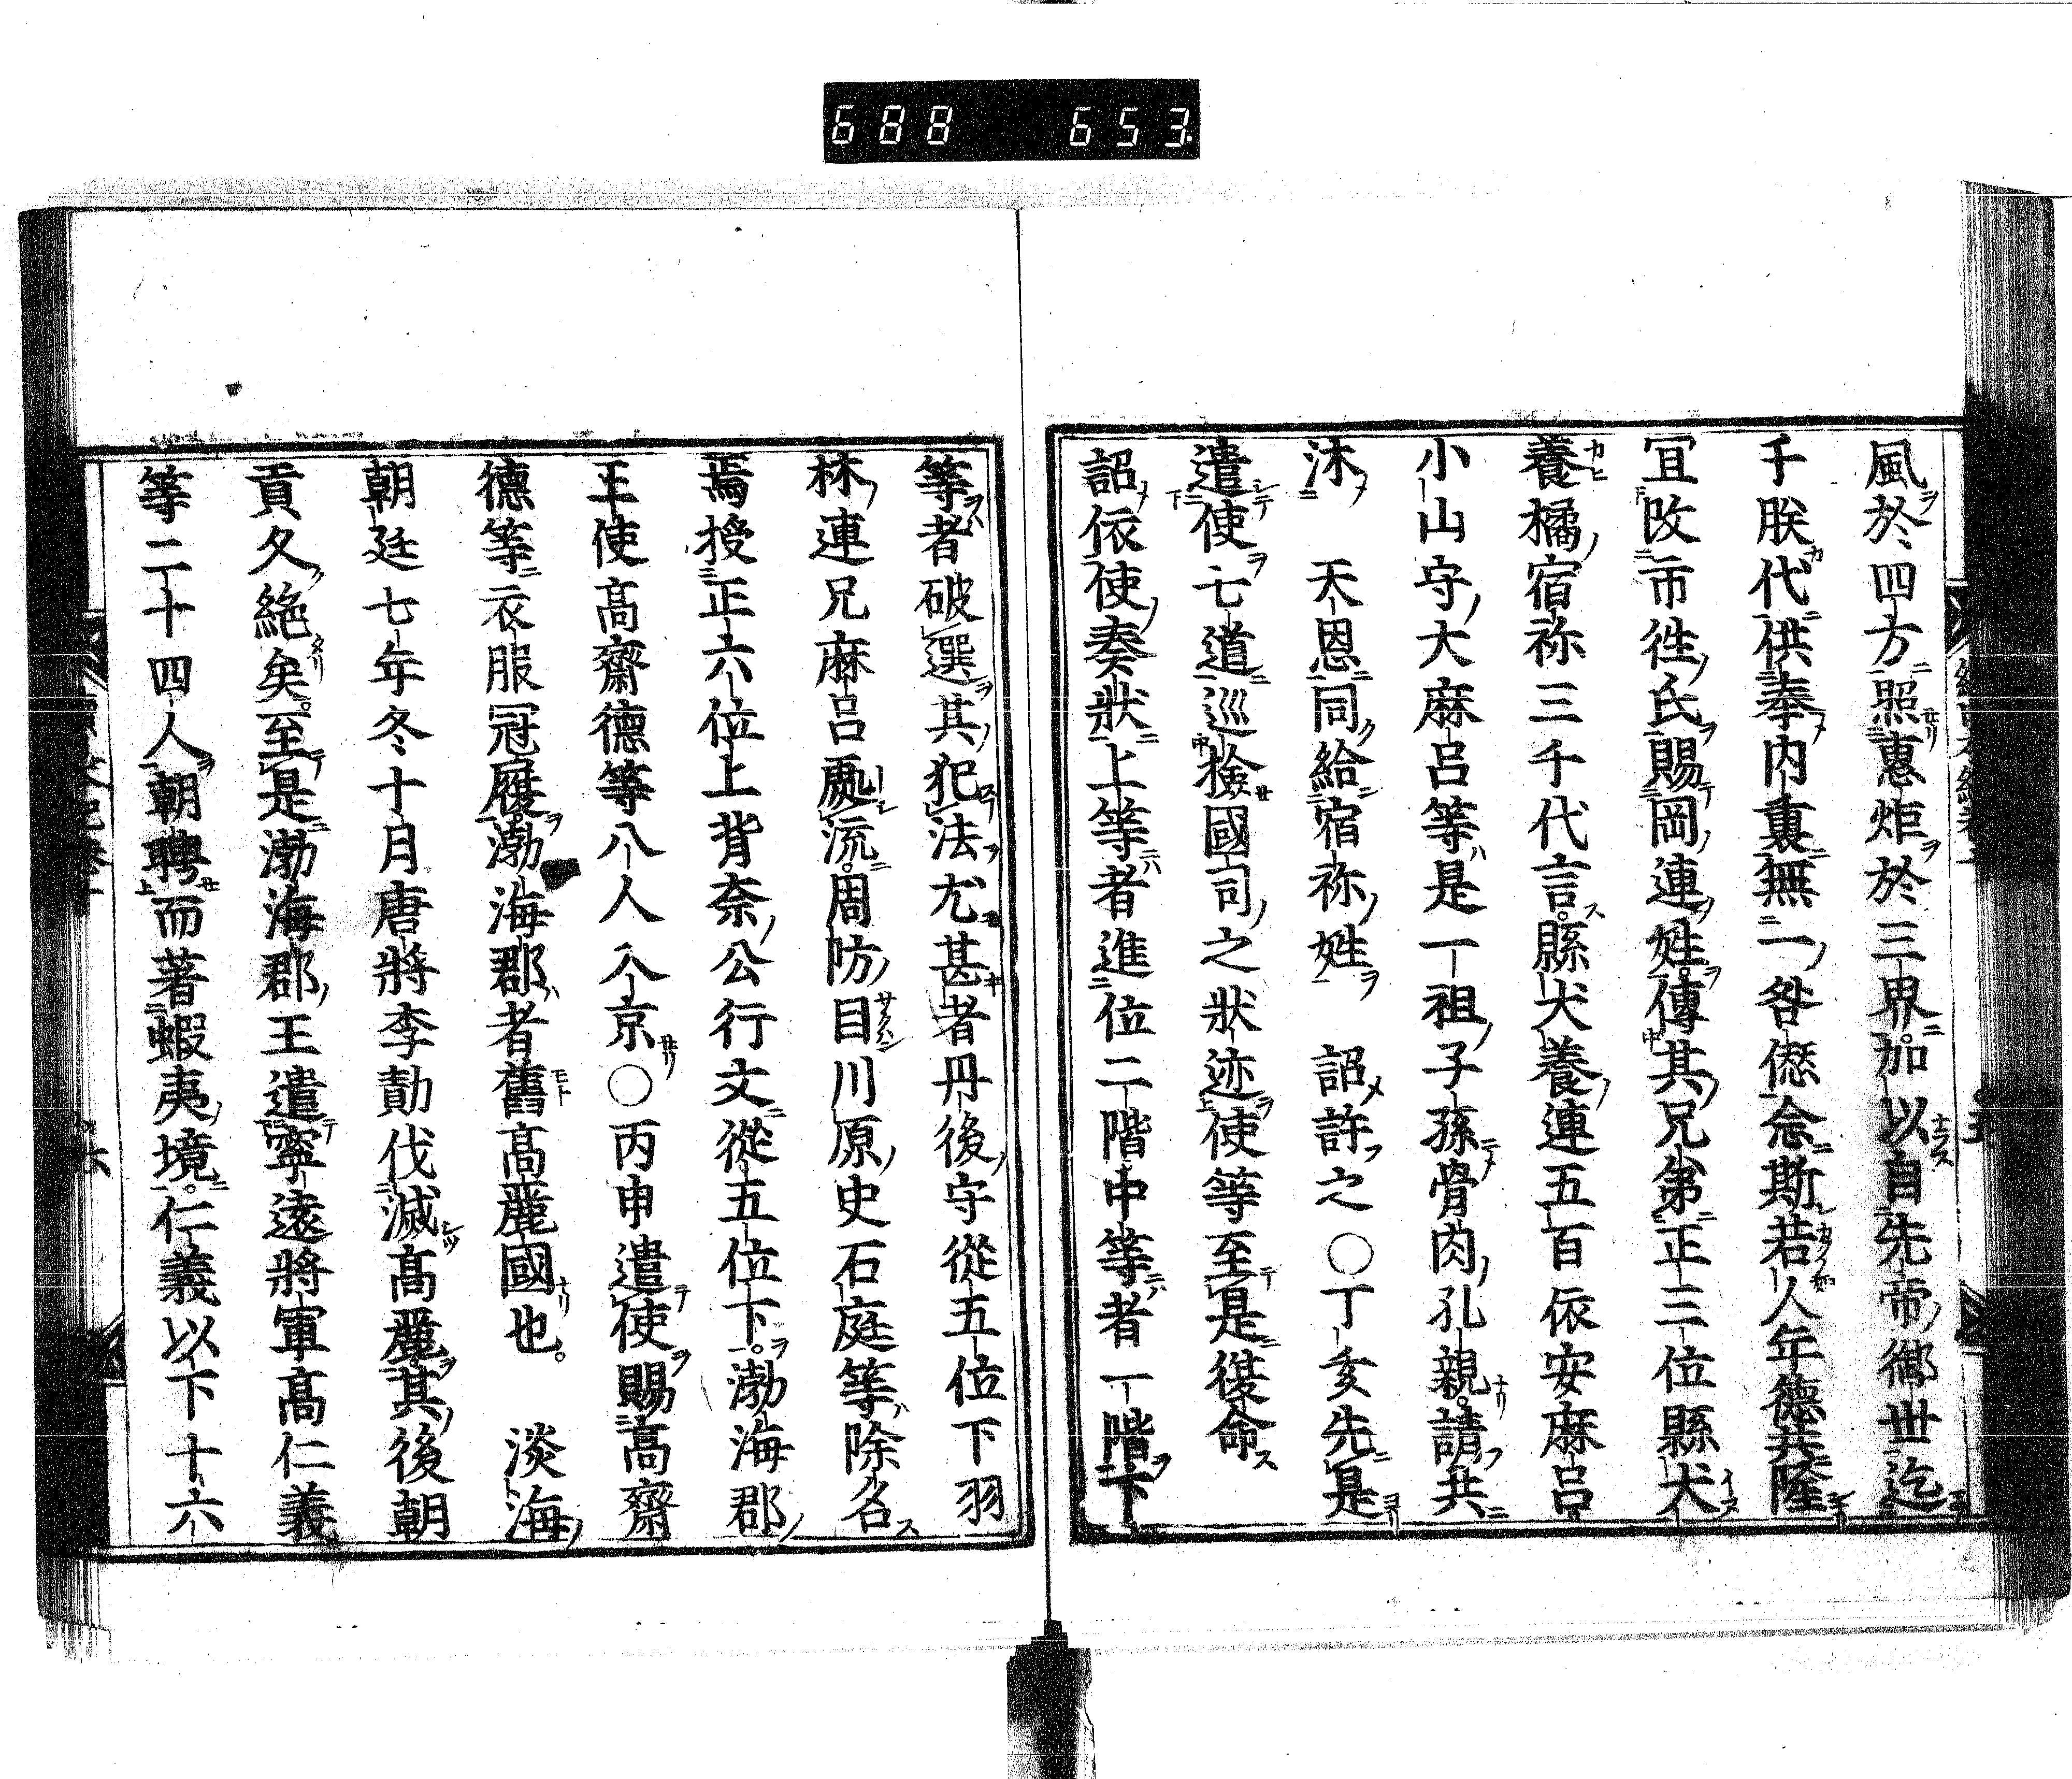 688 653
風於四方照惠炬於三界加以自先帝御世迄
于朕代供奉內裏無一咎僽念斯若人年德共隆
冝改市徃氏賜岡連姓傳其兄弟正三位縣犬
養橘宿祢三千代言縣犬養連五百依安麻呂
小山守大麻呂等是一祖子孫骨肉孔親請共
沐　天恩同給宿祢姓　詔許之〇丁亥先是
遣使七道巡檢國司之狀迹使等至是復命
詔依使奏狀上等者進位二階中等者一階下
等者破選其犯法尤甚者丹後守從五位下羽
林連兄麻呂處流周防目川原史石庭等除名
焉授正六位上背奈公行文從五位下渤海郡
王使高齋德等八人入京〇丙申遣使賜高齋
德等衣服冠履渤海郡者舊高麗國也。　淡海
朝廷七年冬十月唐將李勣伐滅高麗其後朝
貢久絕矣。至是渤海郡王遣寧遠將軍高仁義
等二十四人朝聘而著蝦夷境。仁義以下十六